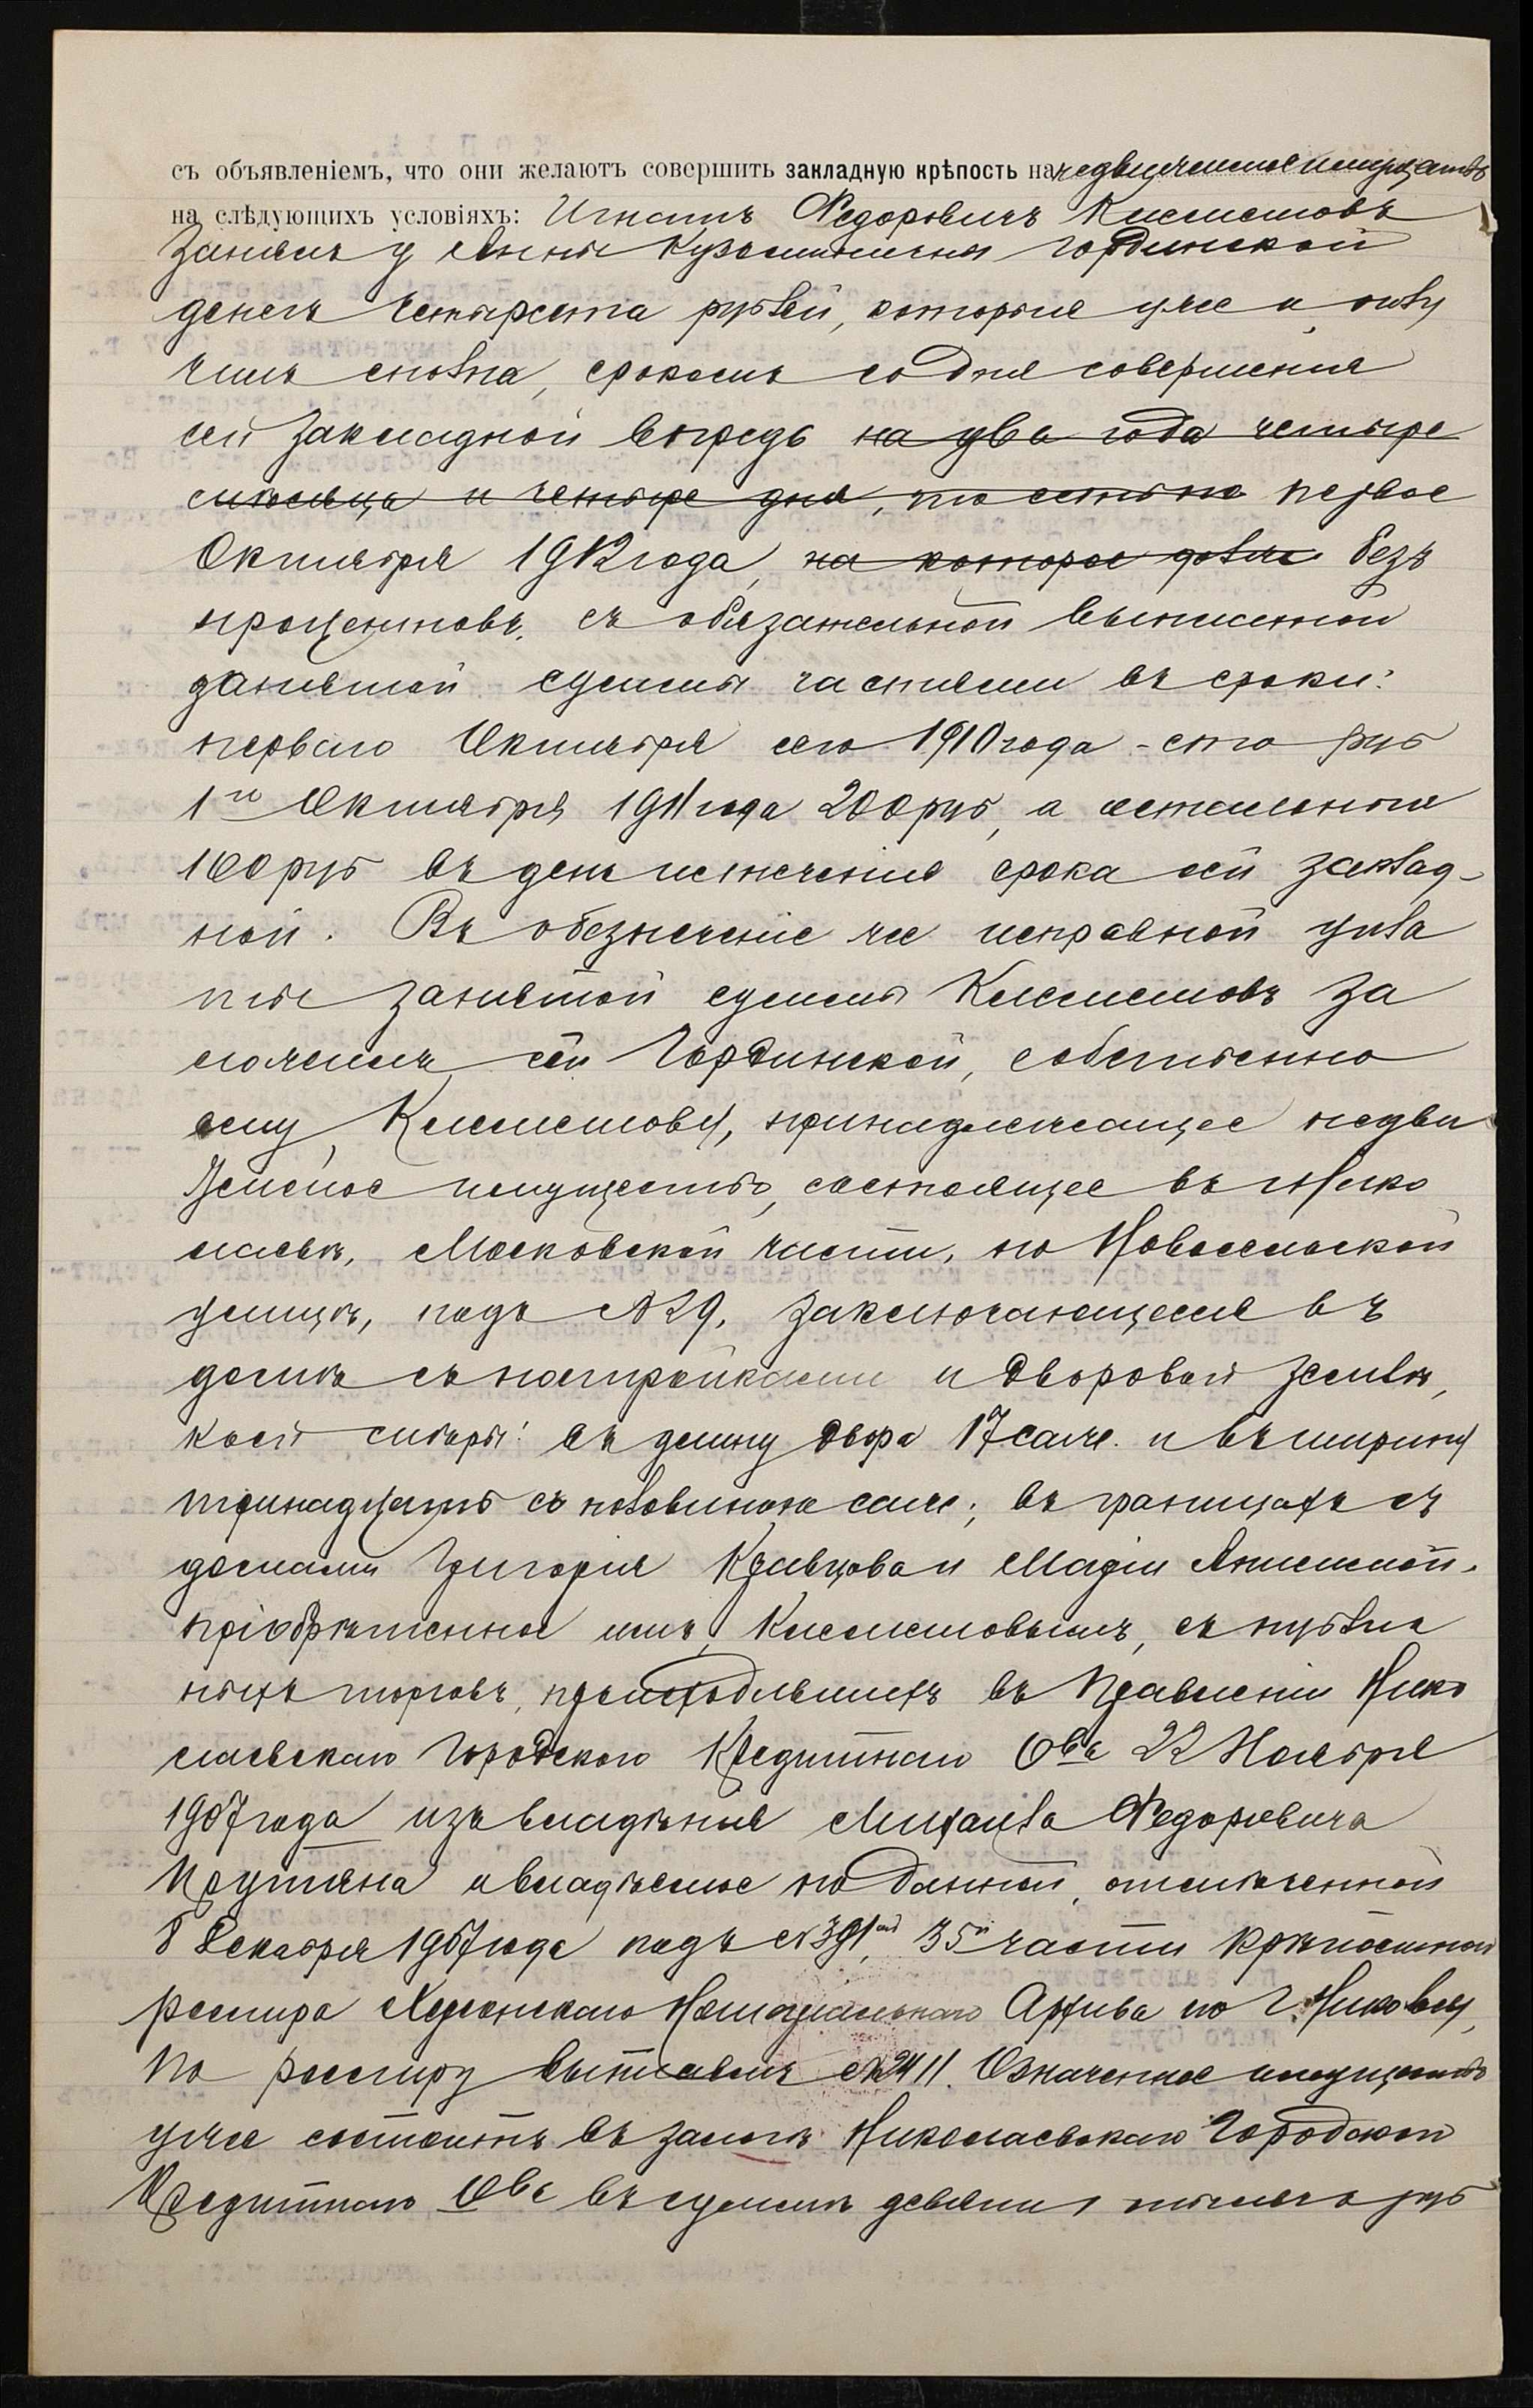 съ объявленіемъ, что они желаютъ совершить закладную крѣпость на недвижимое имущество
на слѣдующихъ условіяхъ: Игнатъ Федоровичъ
занялъ у Анны Кузьминичны Гординской
денегъ четыреста рублей, которые уже и полу
чилъ сполна, срокомъ со дня совершенія
сей закладной впредь на два года четыре
мѣсяца и четыре дня, то есть по первое
Октября 1912 года, на которое дали безъ
процентовъ, съ обязательной выплатой
занятой суммы частями въ сроки:
перваго Октября сего 1910 года - сто руб
1го Октября 1911 года 200 руб, а остальные
100 руб въ день истеченія срока сей заклад-
ной. Въ обезпеченіе же исправной упла
ты занятой суммы за
ложилъ ей Гординской, собственно
ему, принадлежащее недви
жимое имущество, состоящее въ г. Нико
лаевѣ, Московской части, по Новосельской
улицѣ, подъ №29, заключающееся въ
домѣ съ постройками и дворовой землѣ,
коей мѣры: въ длину двора 17 саж. и въ ширину
тринадцать съ половиною саж; въ границахъ съ
домами Григорія Кравцова и Маріи
пріобрѣтенное имъ, съ публич
ныхъ торговъ, происходившихъ въ Правленіи Нико
лаевскаго Городского Кредитнаго Ова 22 Ноября
1907 года изъ владѣнія Михаила Федоровича
и владѣемое по данной, отмѣченной
8 Декабря 1907 года подъ №391, 35й части крѣпостного
реестра Херсонскаго Нотаріальнаго Архива по г. Николаеву,
по реестру выписей №2411. Означенное имущество
уже состоитъ въ залогѣ Николаевскаго Городского
Кредитнаго Ова въ суммѣ девяти тысячъ руб